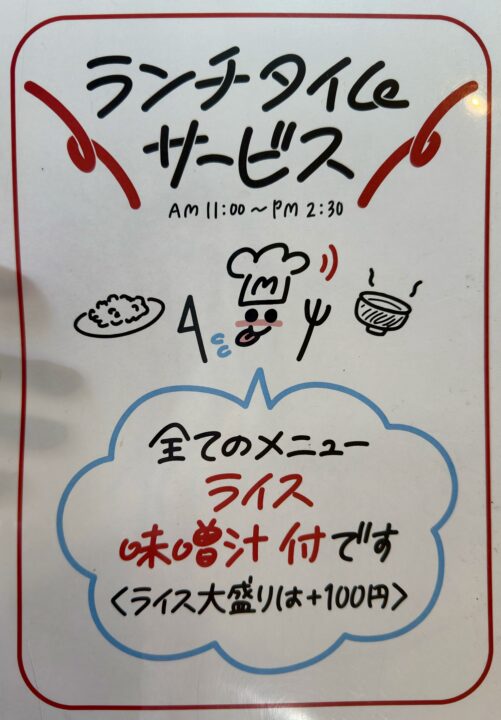 ランチタイム
サービス
AM 11:00 〜 PM 2:30
M
全てのメニュー
ライス
味噌汁 付です
<ライス大盛りは+100円>